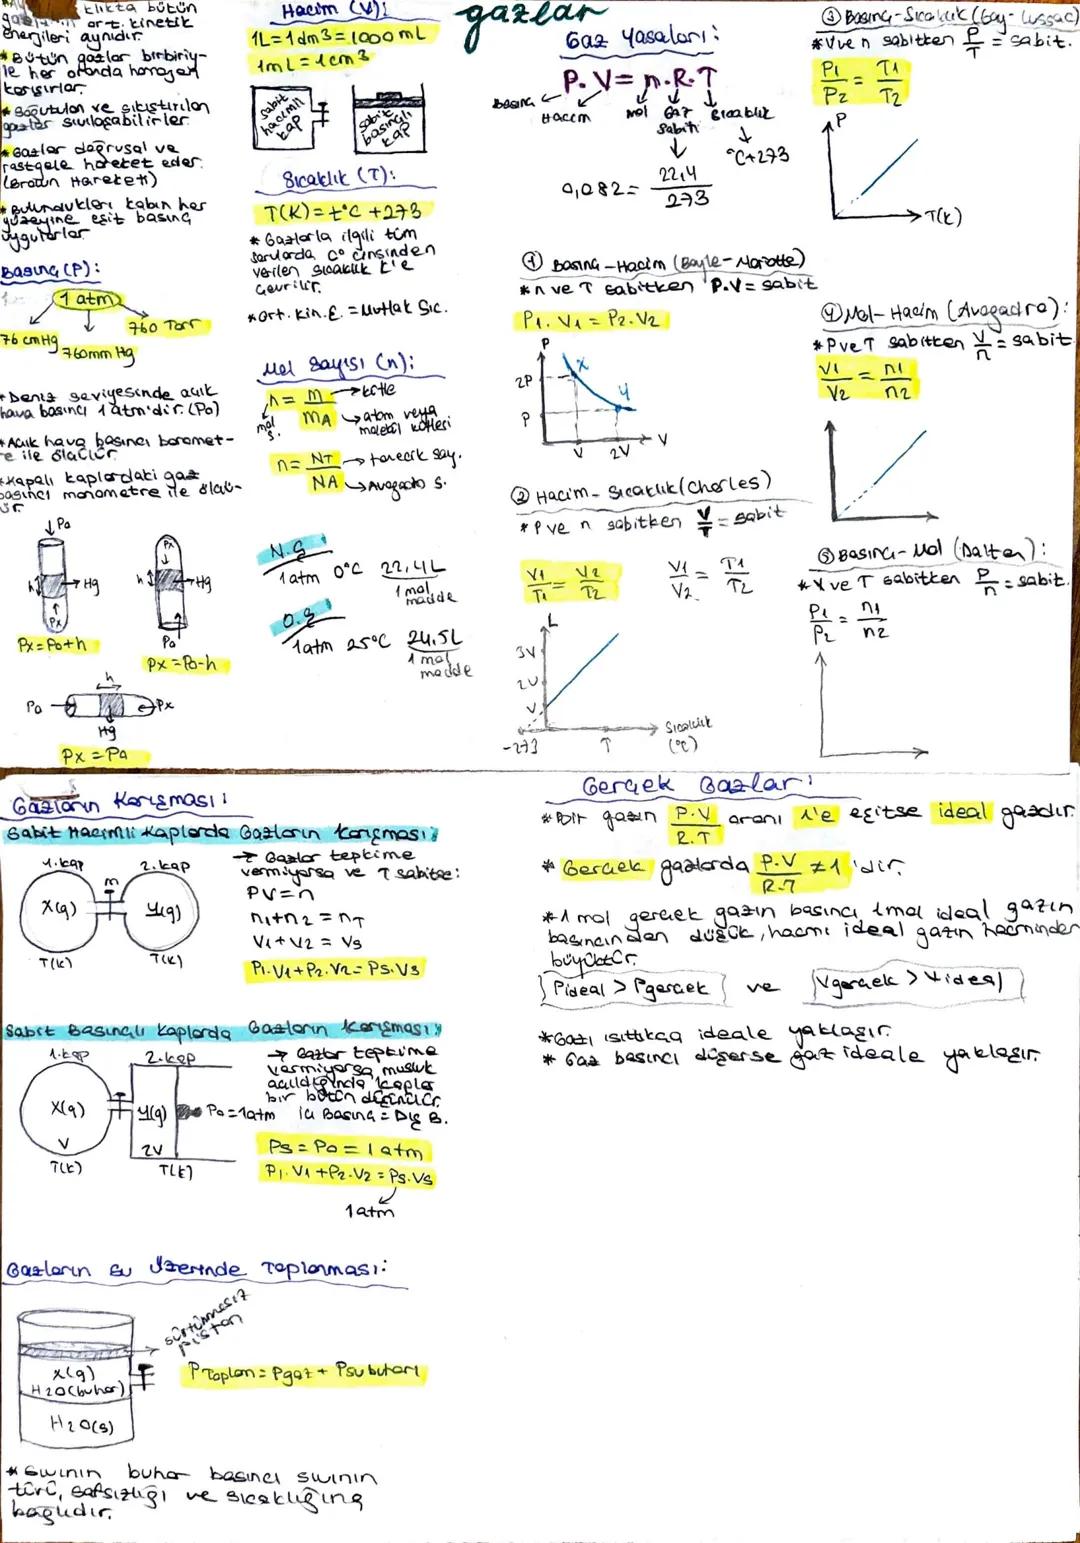 gazlar
klıkta bütün
ort. kinetik
enerjileri aynıdır.
* Bütün gazlar birbiriy-
le her oranda homojen
karışırlar.
* Soğutulan ve sıkıştırılan
gazlar sıvılaşabilirler.
* Gazlar doğrusal ve
rastgele hareket eder.
(Brown Hareketi)
* Bulundukları kabın her
yüzeyine eşit basınç
uygularlar.
Basınç (P):
1 atm
76 cmHg
760mm Hg
760 Torr
* Deniz seviyesinde açık
hava basıncı 1 atm'dir. (Po)
* Açık hava basıncı baromet-
re ile ölçülür.
* Kapalı kaplardaki gaz
basıncı manometre ile ölçü-
lür.
Po
h
Hg
Px
Px=Po+h
Px
h
Hg
Po
Px=Po-h
h
Po
Px
Hg
Px = Po
Hacim (V):
1L=1dm3=1000 mL
1mL=1cm3
sabit
hacimli
kap
sabit
basınçlı
kap
Sıcaklık (T):
T(K)=t°C +273
* Gazlarla ilgili tüm
sorularda C° cinsinden
verilen sıcaklık K'e
çevrilir.
* Ort. Kin. E. = Mutlak Sıc.
Mol Sayısı (n):
n= m → kütle
mol
s.
MA → atom veya
molekül kütlesi
n= NT → tanecik say.
NA → Avogadro s.
N.Ş
1atm 0°C 22,4L
1 mol
madde
O.Ş
1atm 25°C 24,5L
1 mol
madde
Gaz Yasaları:
P.V=n.R.T
basınç
Hacim
mol
Gaz
Sabiti
Sıcaklık
°C+273
0,082= 22,4
273
① Basınç-Hacim (Boyle-Mariotte)
* n ve T sabitken P.V= sabit
P1.V1 = P2.V2
P
2P
P
X
Y
V
2V
V
② Hacim-Sıcaklık (Charles)
* P ve n sabitken V/T = sabit
V1/T1 = V2/T2
V1/V2 = T1/T2
L
3V
2V
V
-273
T
Sıcaklık
(°C)
③ Basınç-Sıcaklık (Gay-Lussac)
* V ve n sabitken P/T = sabit.
P1/P2 = T1/T2
P
T(K)
④ Mol-Hacim (Avogadro):
* P ve T sabitken V/n = sabit
V1/V2 = n1/n2
⑤ Basınç-Mol (Dalton):
* V ve T sabitken P/n = sabit.
P1/P2 = n1/n2
Gazların Karışması:
Sabit Hacimli Kaplarda Gazların Karışması:
1.kap
2.kap
m
X(g)
Y(g)
T(K)
T(K)
→ Gazlar tepkime
vermiyorsa ve T sabitse:
PV=n
n1+n2=nT
V1+V2 = Vs
P1.V1+P2.V2=Ps.Vs
Sabit Basınçlı Kaplarda Gazların Karışması:
1.kap
2.kap
X(g)
V
T(K)
Y(g)
2V
T(K)
Po=1atm
→ Gazlar tepkime
vermiyorsa musluk
açıldığında kaplar
bir bütün düşünülür.
İç Basınç = Dış B.
Ps = Po = 1 atm
P1.V1+P2.V2=Ps.Vs
1atm
Gazların Su Üzerinde Toplanması:
sürtünmesiz
piston
X(g)
H2O(buhar)
H2O(s)
PToplam = Pgaz + Psu buharı
* Sıvının buhar basıncı sıvının
türü, safsızlığı ve sıcaklığına
bağlıdır.
Gerçek Gazlar:
* Bir gazın P.V/R.T oranı 1'e eşitse ideal gazdır.
* Gerçek gazlarda P.V/R.T ≠1'dir.
* 1 mol gerçek gazın basıncı 1mol ideal gazın
basıncından düşük, hacmi ideal gazın hacminden
büyüktür.
Pideal > Pgerçek ve Vgerçek > Videal
* Gazı ısıttıkça ideale yaklaşır.
* Gaz basıncı düşerse gaz ideale yaklaşır.